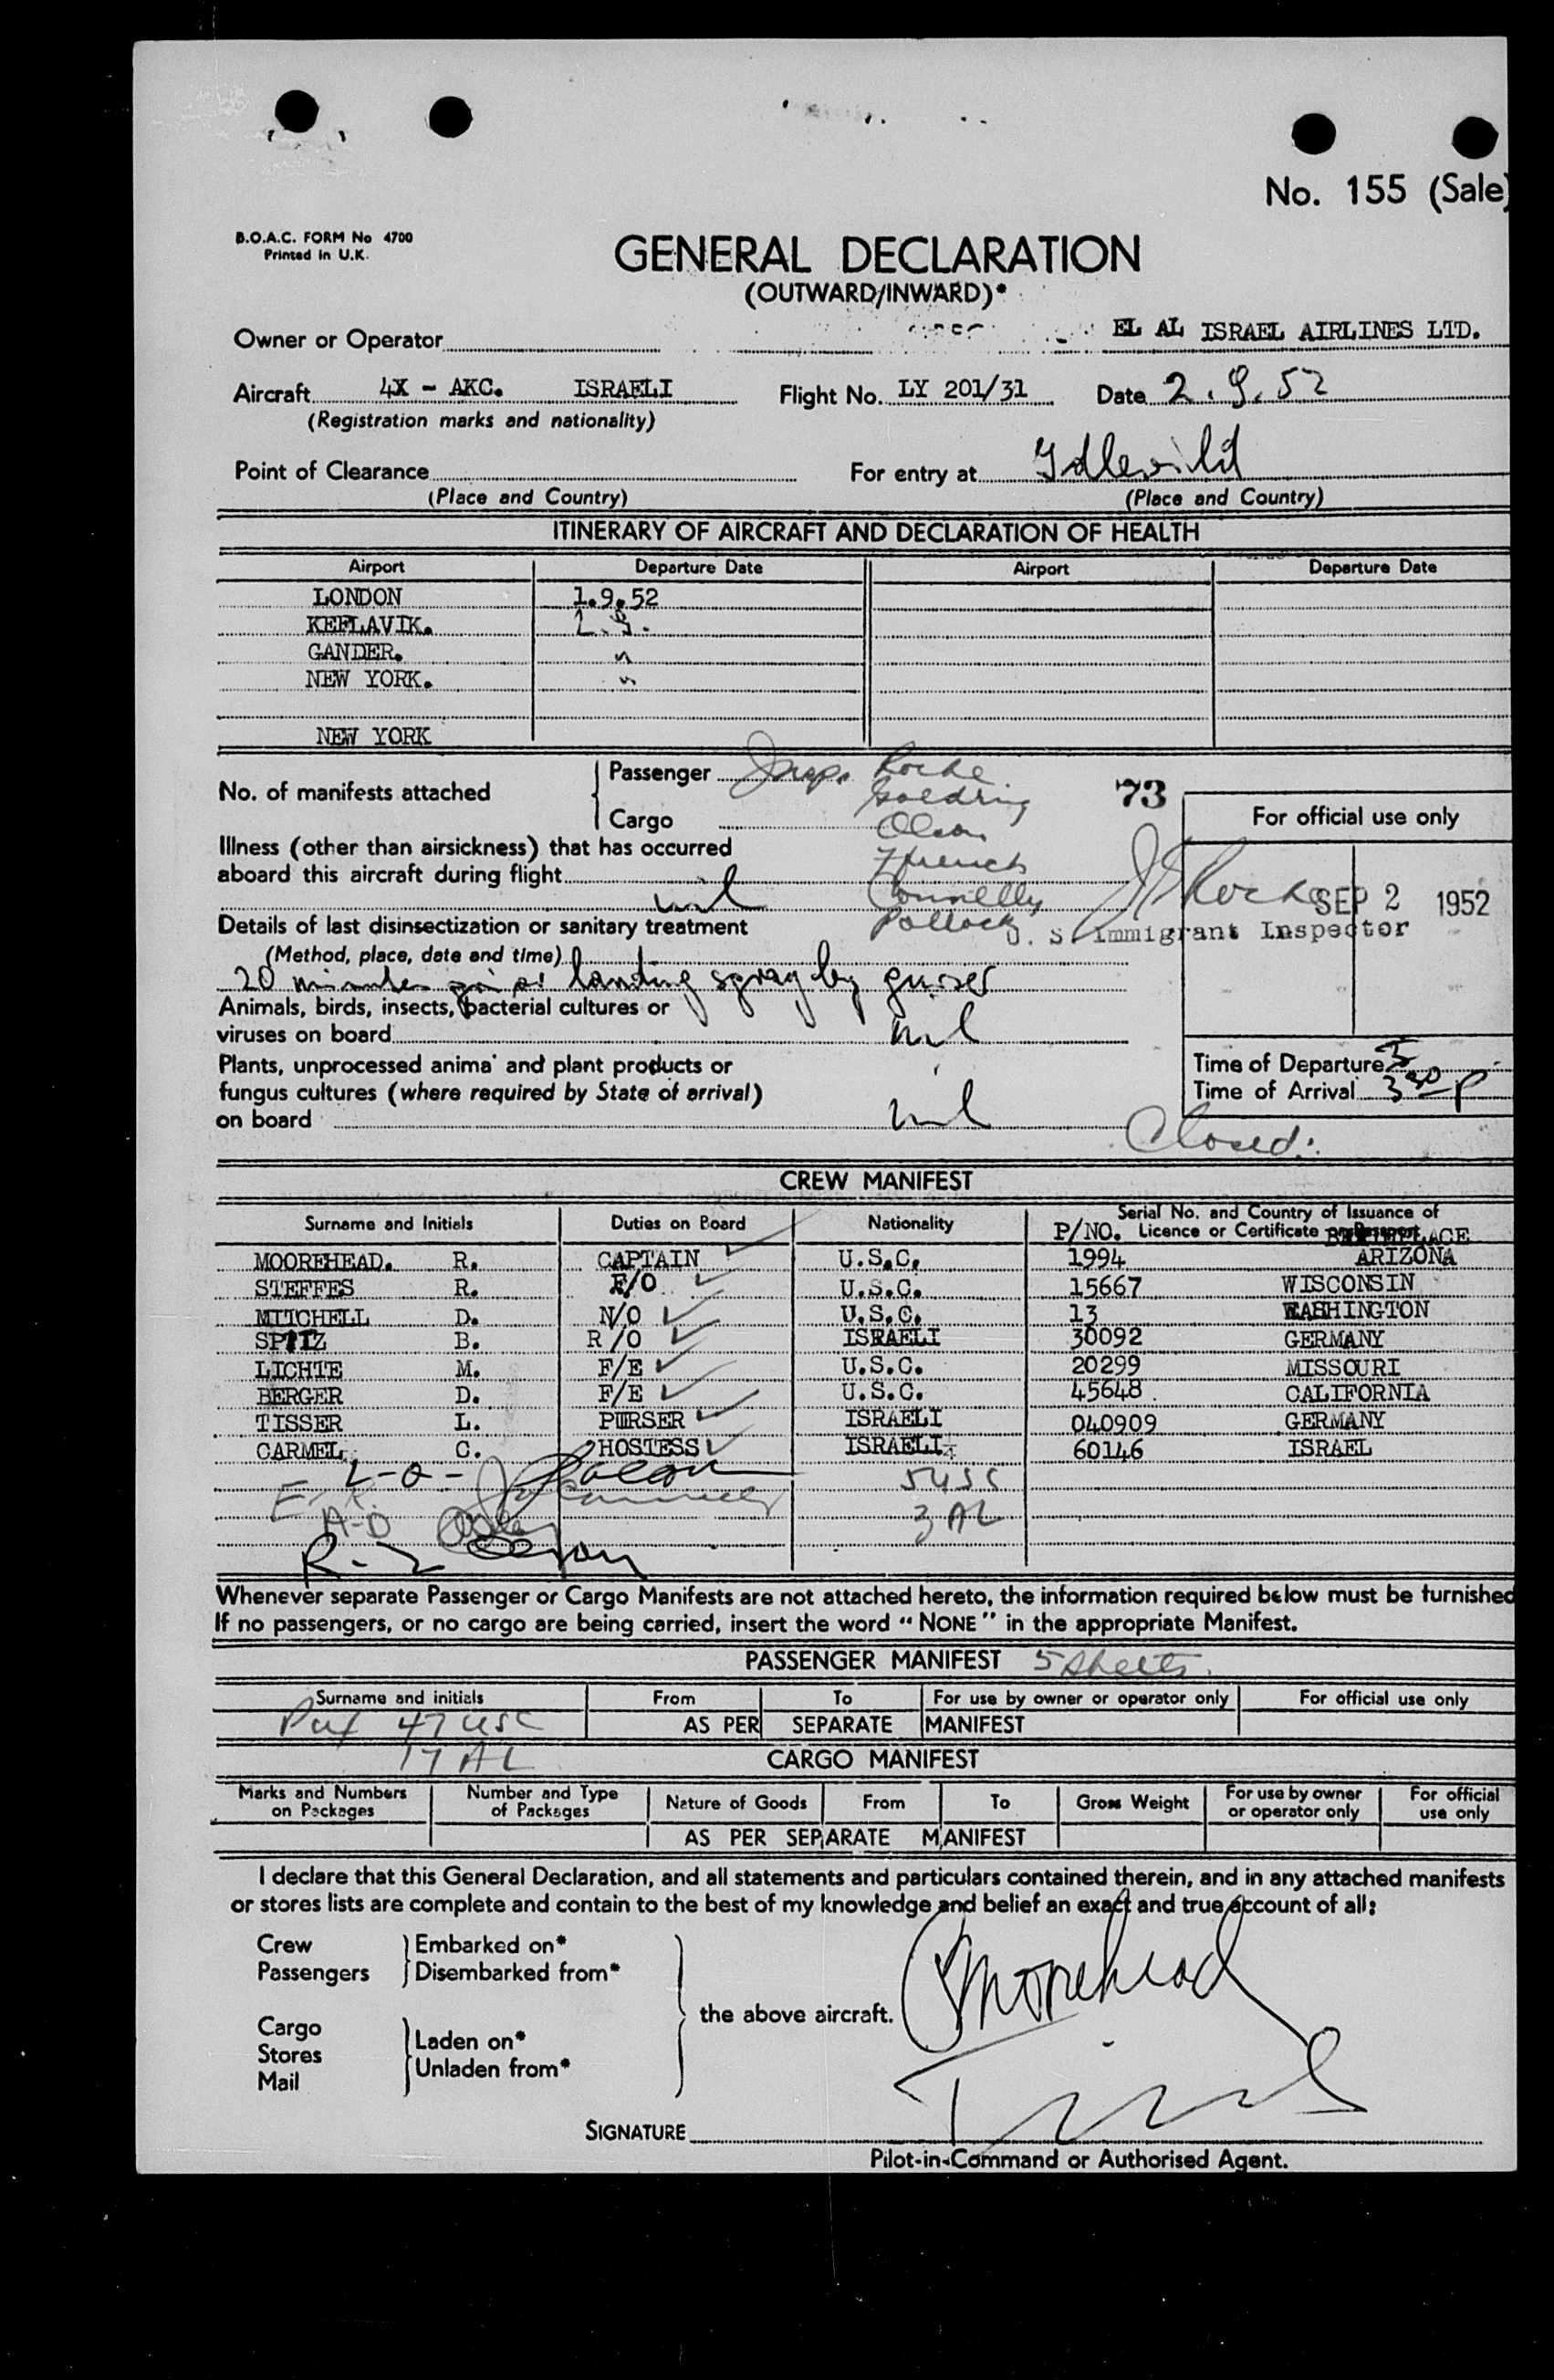 No. 155 (Sale)
B.O.A.C. FORM No 4700
Printed in U.K.
GENERAL DECLARATION
(OUTWARD/INWARD)*
Owner or Operator EL AL ISRAEL AIRLINES LTD.
Aircraft 4X - AKC. ISRAELI Flight No. LY 201/31 Date 2.9.52
(Registration marks and nationality)
Point of Clearance For entry at Idlewild
(Place and Country) (Place and Country)
ITINERARY OF AIRCRAFT AND DECLARATION OF HEALTH
Airport Departure Date Airport Departure Date
LONDON 1.9.52
KEFLAVIK. 2.9.
GANDER. "
NEW YORK. "
NEW YORK
No. of manifests attached
Passenger Insps. Roche
Goldring
73
Cargo Olson
For official use only
Illness (other than airsickness) that has occurred Ffrench
aboard this aircraft during flight nil Connelly
Pollack
SEP 2 1952
U. S. Immigrant Inspector
Details of last disinsectization or sanitary treatment
(Method, place, date and time)
20 minutes prior landing spray by purser
Animals, birds, insects, bacterial cultures or
viruses on board nil
Plants, unprocessed animal and plant products or
fungus cultures (where required by State of arrival)
on board nil
Time of Departure
Time of Arrival 3 30 p
Closed.
CREW MANIFEST
Surname and Initials Duties on Board Nationality Serial No. and Country of Issuance of
P/NO. Licence or Certificate or Passport BIRTHPLACE
MOOREHEAD. R. CAPTAIN U.S.C. 1994 ARIZONA
STEFFES R. F/O U.S.C. 15667 WISCONSIN
MITCHELL D. N/O U.S.C. 13 WASHINGTON
SPITZ B. R/O ISRAELI 30092 GERMANY
LICHTE M. F/E U.S.C. 20299 MISSOURI
BERGER D. F/E U.S.C. 45648 CALIFORNIA
TISSER L. PURSER ISRAELI 040909 GERMANY
CARMEL C. HOSTESS ISRAELI 60146 ISRAEL
L-O-
5 USC
A-D
3 AL
R-I Olson
Whenever separate Passenger or Cargo Manifests are not attached hereto, the information required below must be furnished
If no passengers, or no cargo are being carried, insert the word "NONE" in the appropriate Manifest.
PASSENGER MANIFEST 5 sheets.
Surname and initials From To For use by owner or operator only For official use only
Pax 47 USC AS PER SEPARATE MANIFEST
17 AL
CARGO MANIFEST
Marks and Numbers on Packages Number and Type of Packages Nature of Goods From To Gross Weight For use by owner or operator only For official use only
AS PER SEPARATE MANIFEST
I declare that this General Declaration, and all statements and particulars contained therein, and in any attached manifests
or stores lists are complete and contain to the best of my knowledge and belief an exact and true account of all:
Crew Embarked on*
Passengers Disembarked from*
the above aircraft. Moorehead
Cargo
Laden on*
Stores
Unladen from*
Mail
SIGNATURE
Pilot-in-Command or Authorised Agent.